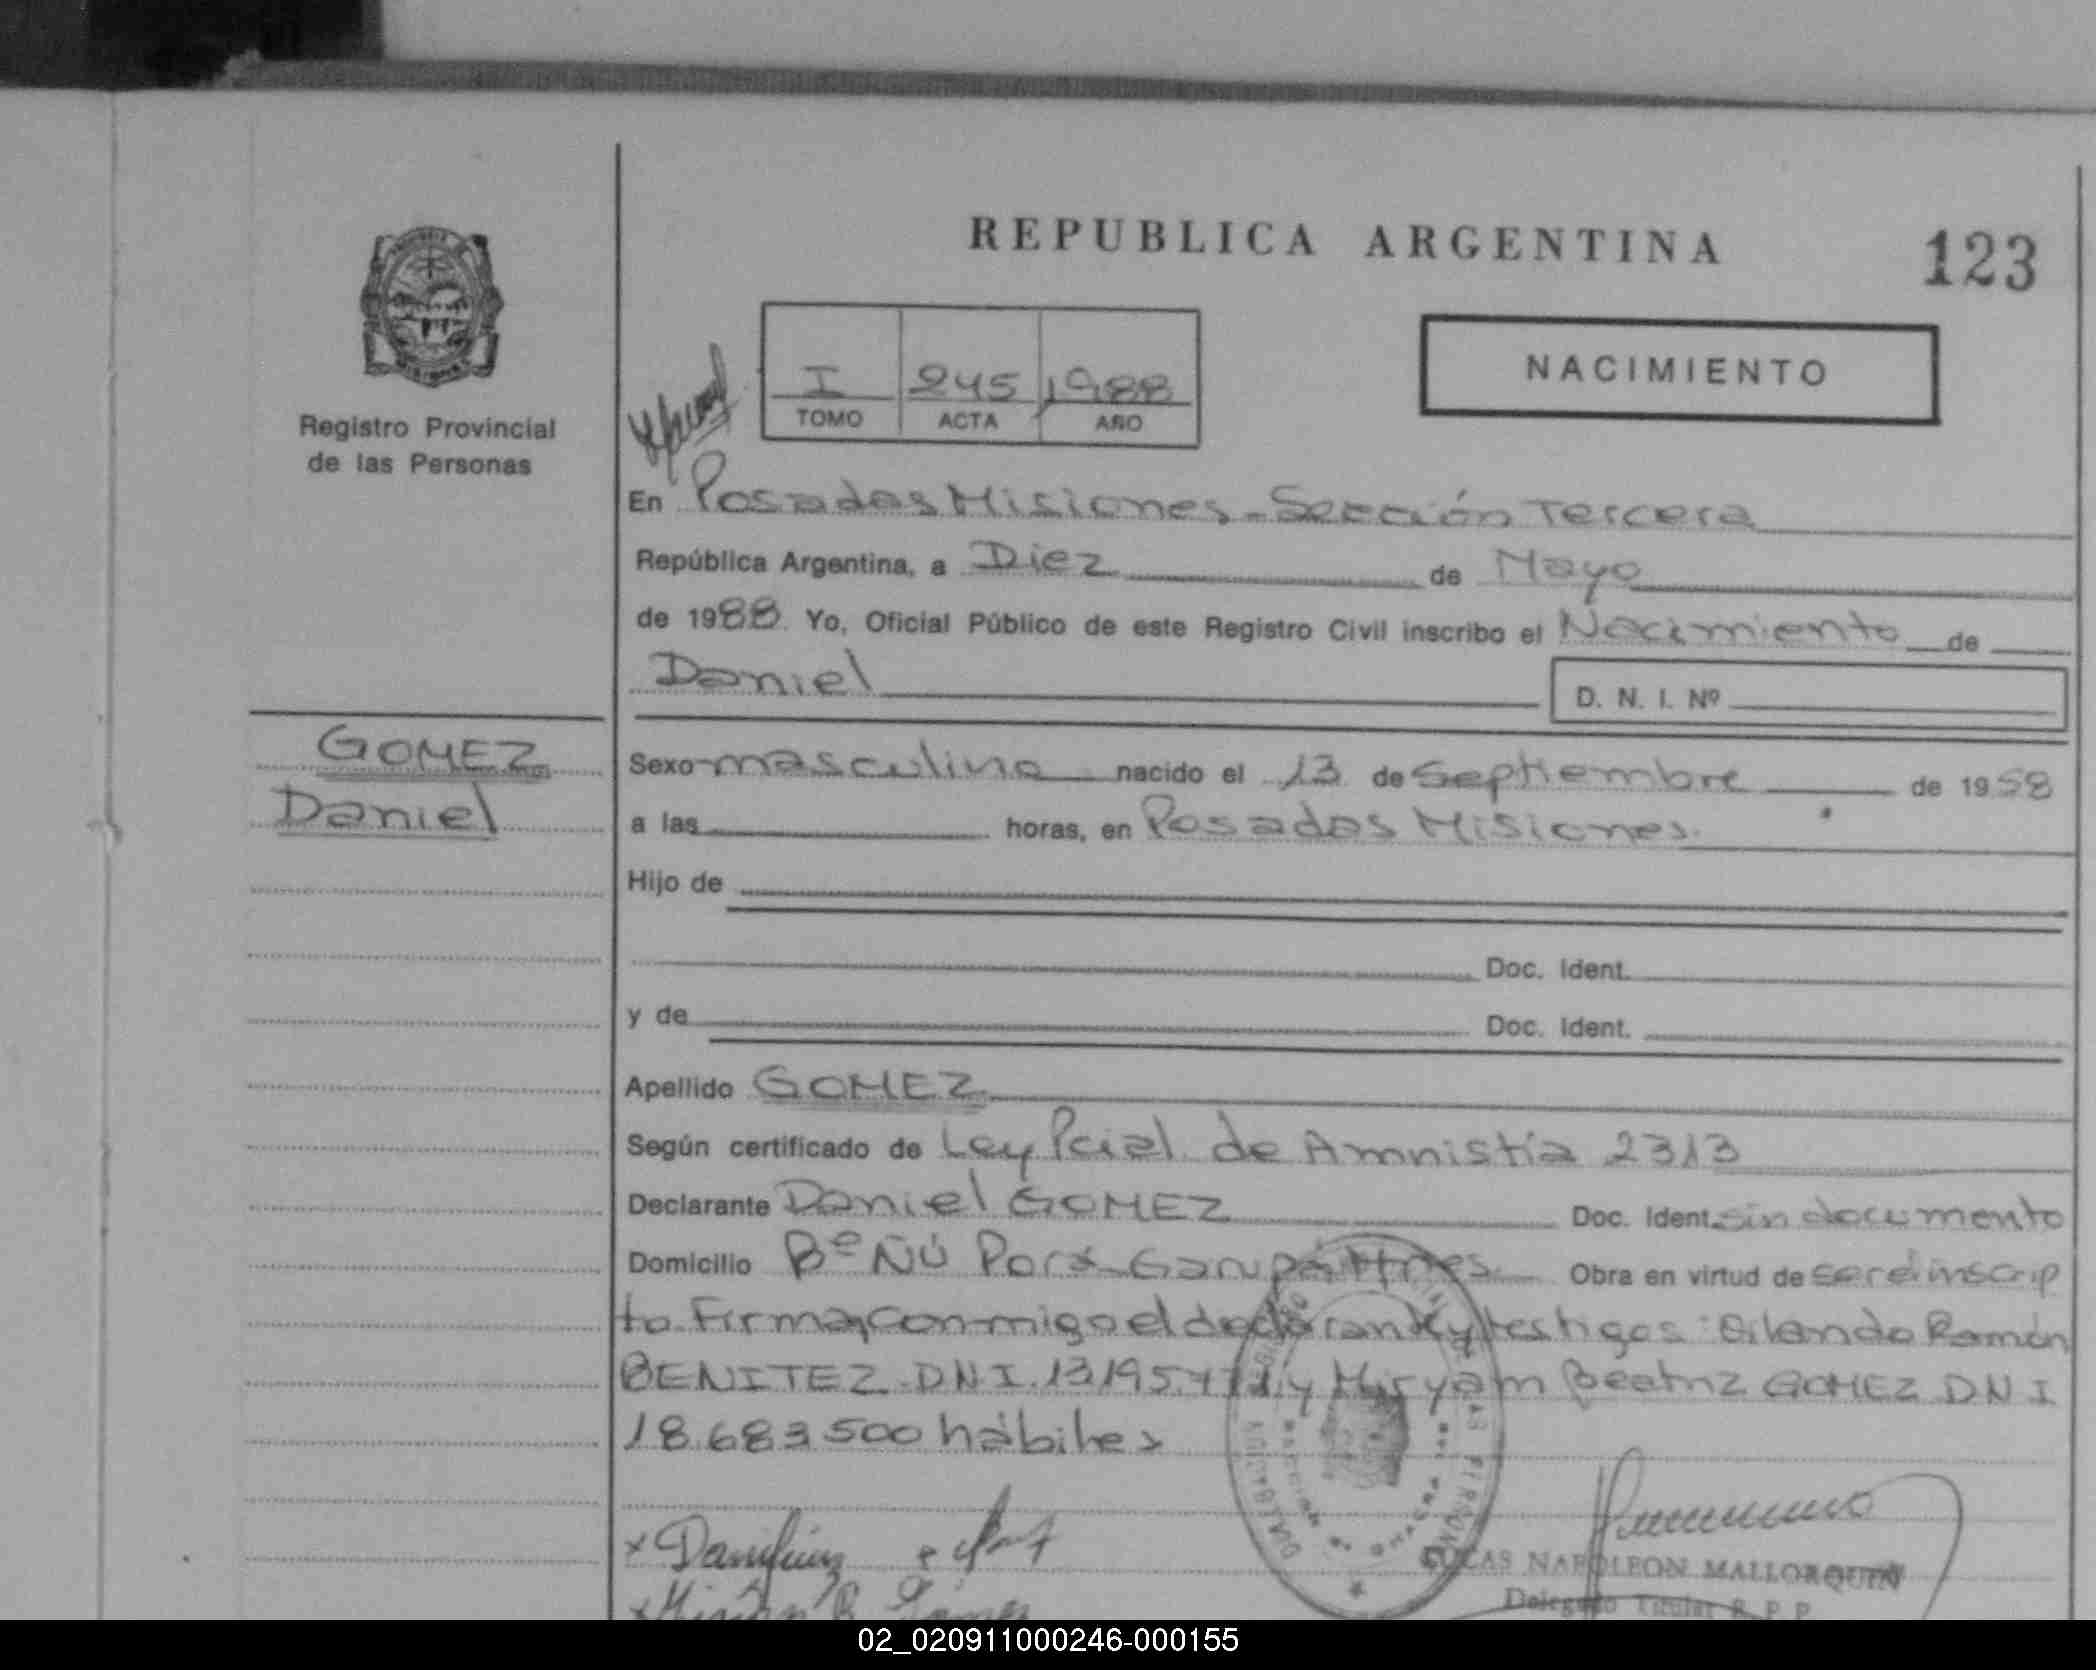 REPUBLICA ARGENTINA
123
Registro Provincial
de las Personas
I 245 1988
TOMO ACTA AÑO
NACIMIENTO
En Posadas Misiones - Sección Tercera
República Argentina, a Diez de Mayo
de 1988. Yo, Oficial Público de este Registro Civil inscribo el Nacimiento de
Daniel
D. N. I. Nº
GOMEZ
Daniel
Sexo masculino nacido el 13 de Septiembre de 1958
a las horas, en Posadas Misiones.
Hijo de
Doc. Ident.
y de Doc. Ident.
Apellido GOMEZ
Según certificado de Ley Pcial. de Amnistía 2313
Declarante Daniel GOMEZ Doc. Ident. sin documento
Domicilio Bº ÑÚ Porá Garupá Mnes. Obra en virtud de ser el inscrip
to. Firman conmigo el declarante y testigos: Orlando Ramón
BENITEZ DNI. 13.195. y Miryam Beatriz GOMEZ DNI
18.683.500 hábiles
LUCAS NAPOLEON MALLORQUIN
Delegado Titular R. P. P.
02_020911000246-000155